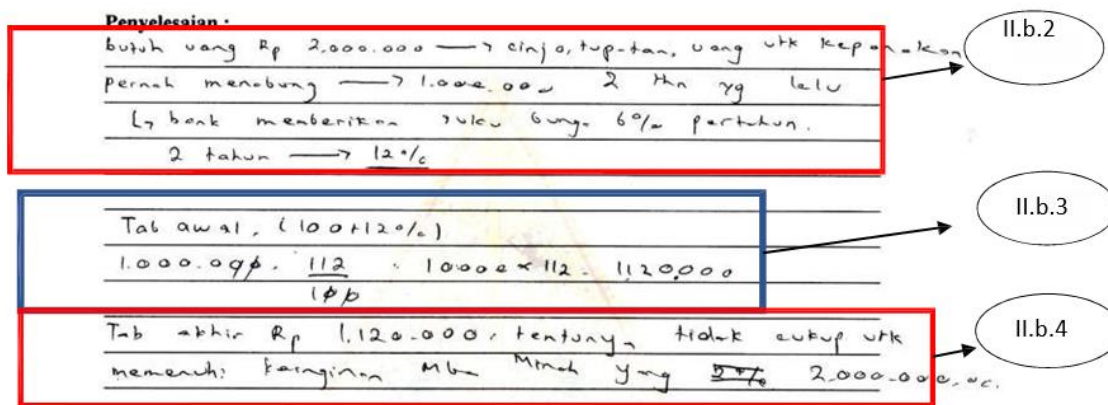 Penyelesaian :
butuh uang Rp 2.000.000 → uang utk keponakan
II.b.2
pernah menabung → 1.000.000 2 thn yg lalu
↳ bank memberikan suku bunga 6% pertahun.
2 tahun → 12%
II.b.3
Tab awal . (100+12%)
1.000.000 . 112/100 . 10000 × 112 . 1.120.000
Tab akhir Rp 1.120.000, tentunya tidak cukup utk
II.b.4
memenuhi keinginan Mba Minah yang 2.000.000,00.